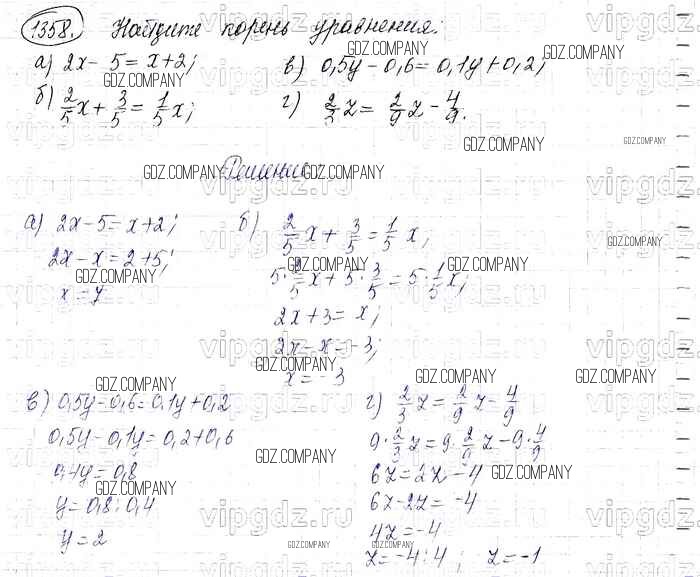 1358. Найдите корень уравнения:
а) 2x - 5 = x + 2;
в) 0,5y - 0,6 = 0,1y + 0,2;
б) 2/5 x + 3/5 = 1/5 x;
г) 2/3 z = 2/9 z - 4/9.
Решение
а) 2x - 5 = x + 2;
2x - x = 2 + 5;
x = 7
б) 2/5 x + 3/5 = 1/5 x;
5 · 2/5 x + 5 · 3/5 = 5 · 1/5 x;
2x + 3 = x;
2x - x = -3;
x = -3
в) 0,5y - 0,6 = 0,1y + 0,2
0,5y - 0,1y = 0,2 + 0,6
0,4y = 0,8
y = 0,8 : 0,4
y = 2
г) 2/3 z = 2/9 z - 4/9
9 · 2/3 z = 9 · 2/9 z - 9 · 4/9
6z = 2z - 4
6z - 2z = -4
4z = -4
z = -4 : 4 ; z = -1
GDZ.COMPANY
vipgdz.ru